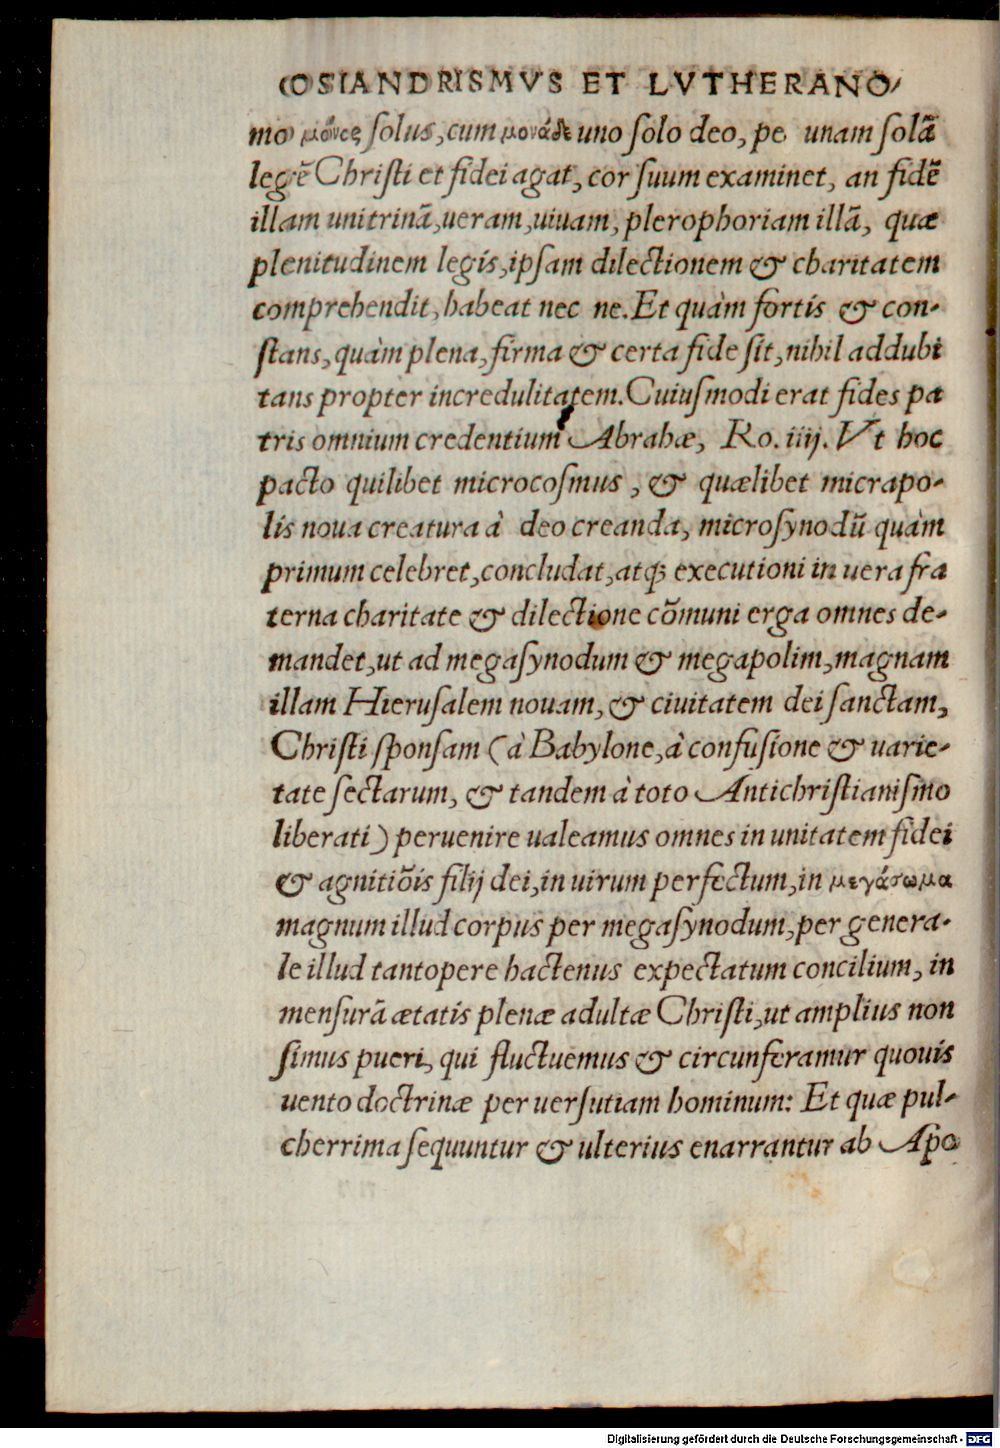 OSIANDRISMVS ET LVTHERANO-
mo μόνος solus, cum μονάδε uno solo deo, pe unam solã
legẽ Christi et fidei agat, cor suum examinet, an fidẽ
illam unitrinã, ueram, uiuam, plerophoriam illã, quæ
plenitudinem legis, ipsam dilectionem & charitatem
comprehendit, habeat nec ne. Et quàm fortis & con-
stans, quàm plena, firma & certa fide sit, nihil addubi
tans propter incredulitatem. Cuiusmodi erat fides pa
tris omnium credentium Abrahæ, Ro. iiij. Vt hoc
pacto quilibet microcosmus, & quælibet micrapo-
lis noua creatura à deo creanda, microsynodũ quàm
primum celebret, concludat, atq; executioni in uera fra
terna charitate & dilectione cõmuni erga omnes de-
mandet, ut ad megasynodum & megapolim, magnam
illam Hierusalem nouam, & ciuitatem dei sanctam,
Christi sponsam (à Babylone, à confusione & uarie-
tate sectarum, & tandem à toto Antichristianismo
liberati) peruenire ualeamus omnes in unitatem fidei
& agnitiõis filij dei, in uirum perfectum, in μεγάσωμα
magnum illud corpus per megasynodum, per genera-
le illud tantopere hactenus expectatum concilium, in
mensurã ætatis plenæ adultæ Christi, ut amplius non
simus pueri, qui fluctuemus & circunferamur quouis
uento doctrinæ per uersutiam hominum: Et quæ pul-
cherrima sequuntur & ulterius enarrantur ab Apo
Digitalisierung gefördert durch die Deutsche Forschungsgemeinschaft - DFG